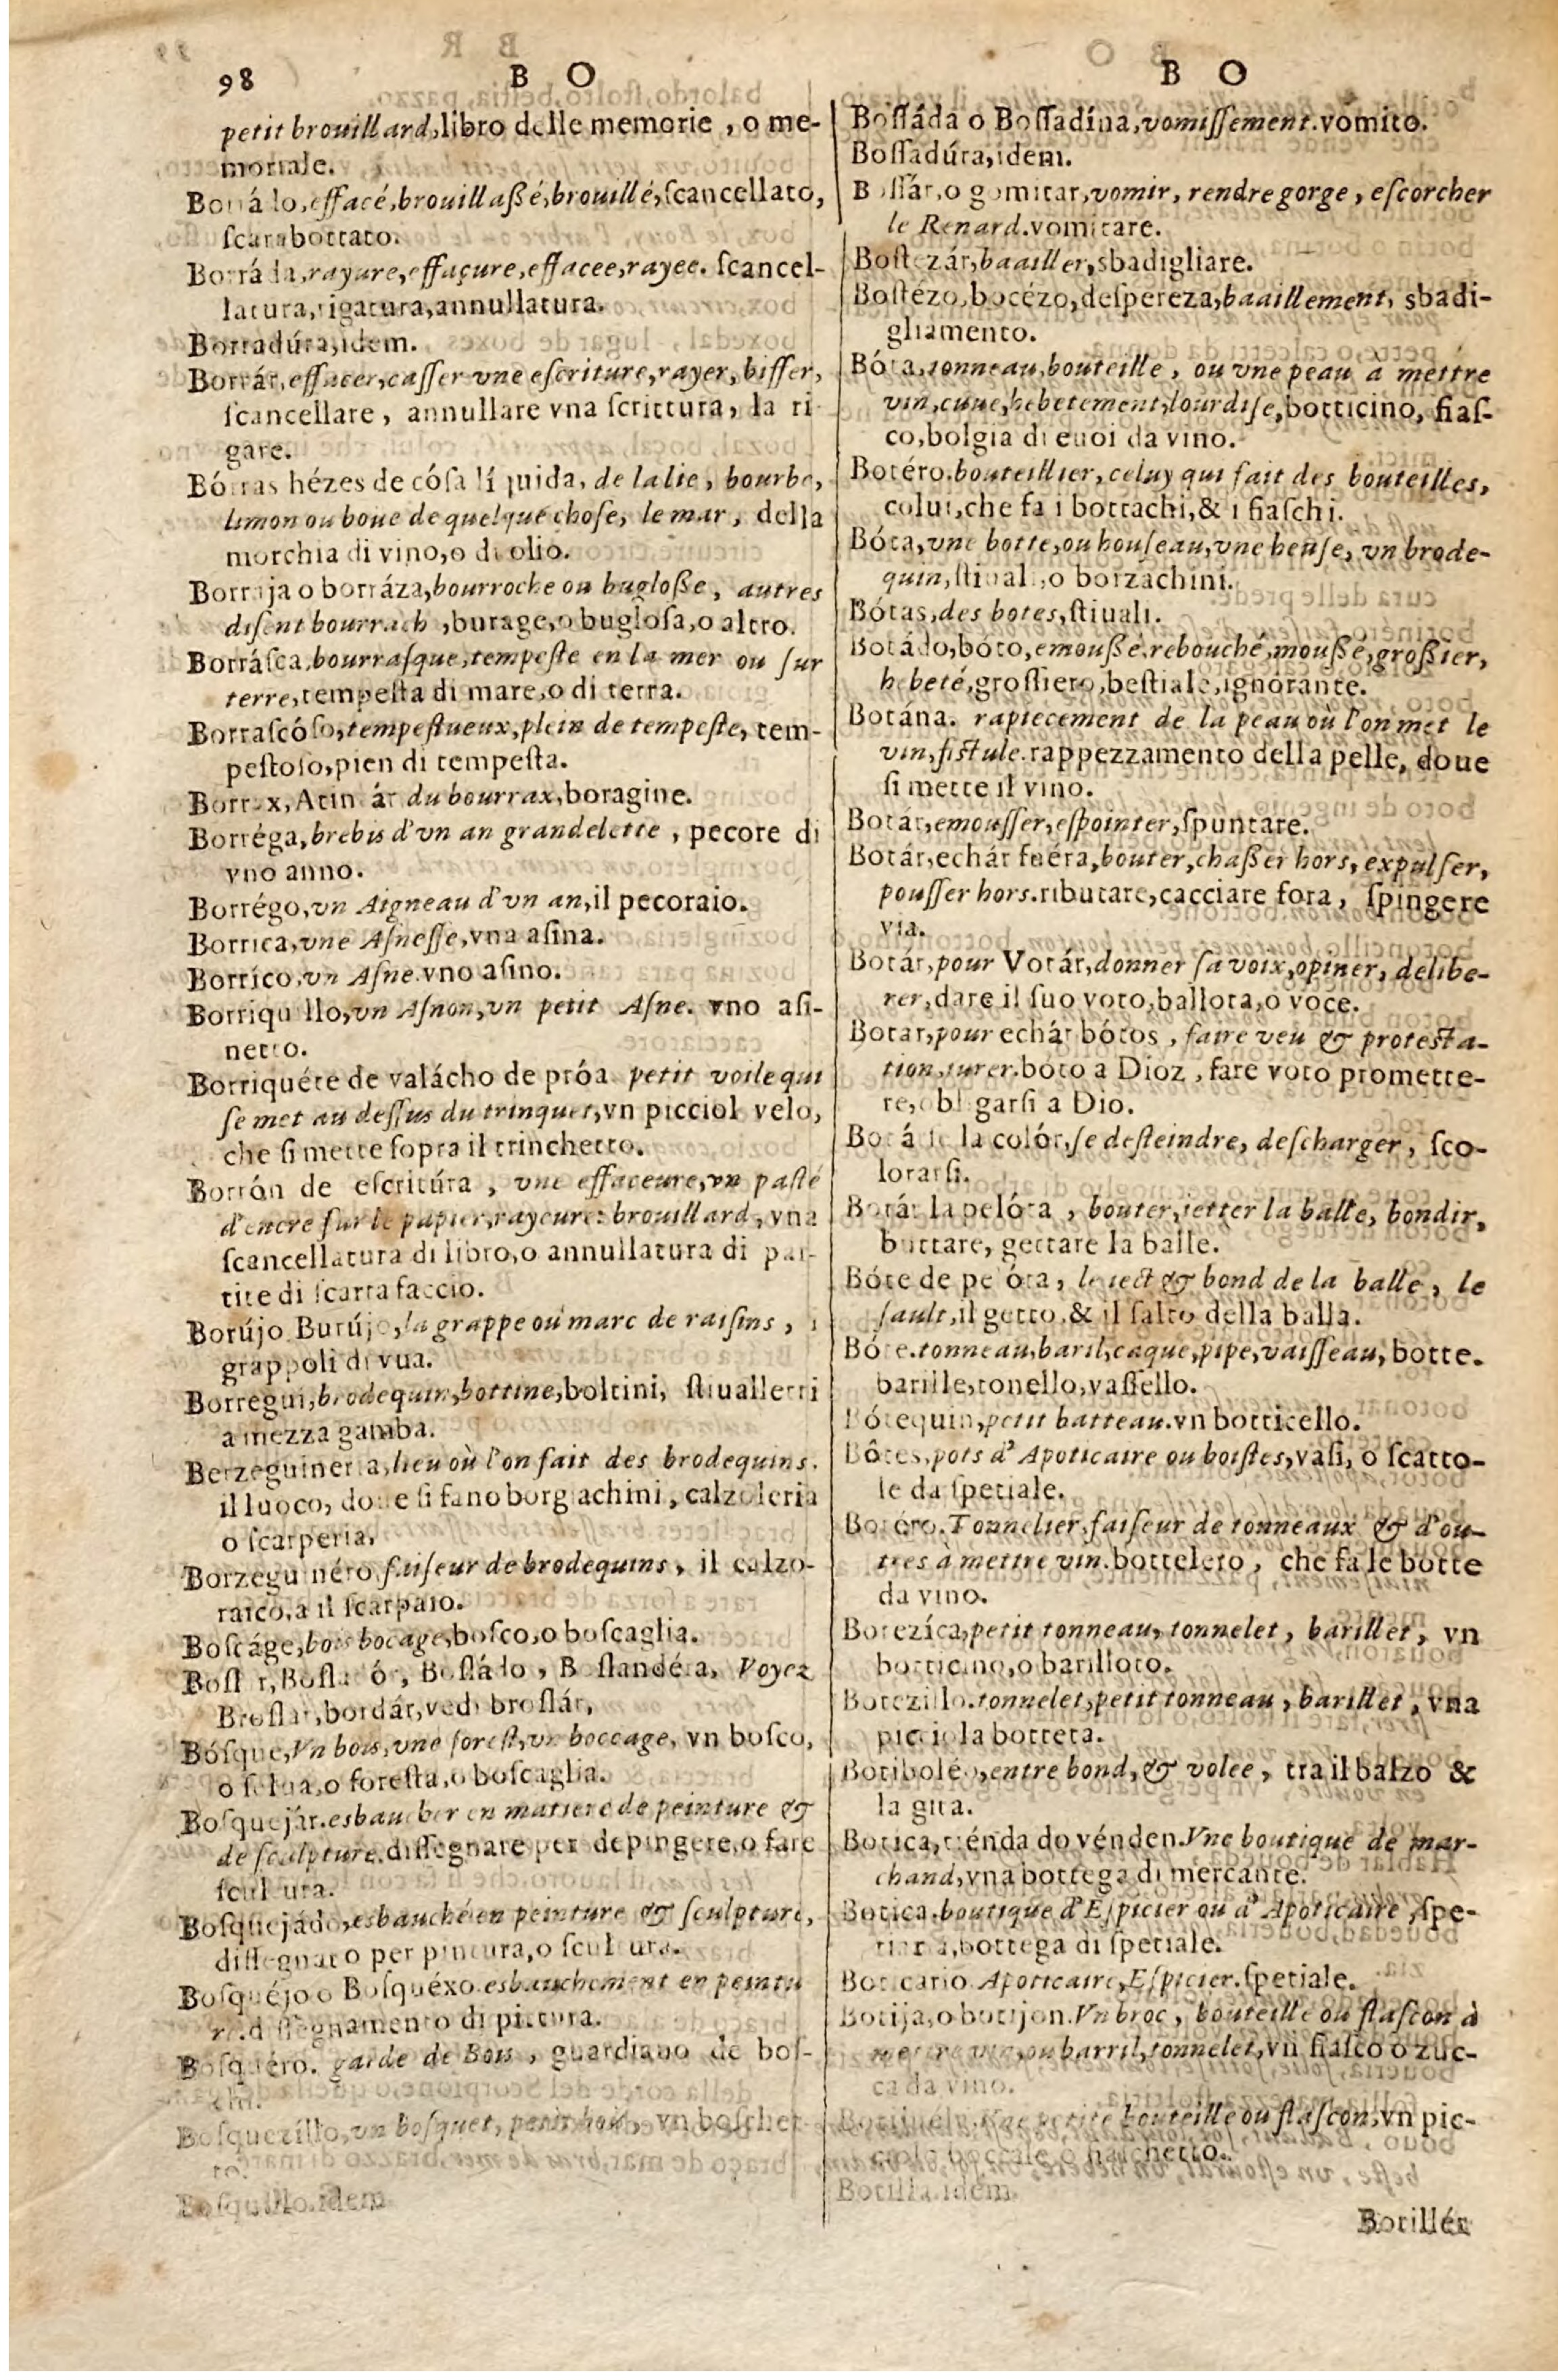 98
B O
petit brouillard, libro delle memorie, o me-
moriale.
Borrádo, effacé, brouillaßé, brouillé, ſcancellato,
ſcarabottato.
Borráda, rayure, effaçure, effacee, rayee. ſcancel-
latura, rigatura, annullatura.
Borradúra, idem.
Borrár, effacer, caſſer vne eſcriture, rayer, biffer,
ſcancellare, annullare vna ſcrittura, la ri
gare.
Bórras hézes de cóſa líquida, de la lie, bourbe,
limon ou boue de quelque choſe, le mar, della
morchia di vino, o di olio.
Borraja o borráza, bourroche ou bugloße, autres
diſent bourrach, burage, o bugloſa, o altro.
Borráſca, bourraſque, tempeſte en la mer ou ſur
terre, tempeſta di mare, o di terra.
Borraſcóſo, tempeſtueux, plein de tempeſte, tem-
peſtoſo, pien di tempeſta.
Borrax, Atincár du bourrax, boragine.
Borréga, brebis d'vn an grandelette, pecore di
vno anno.
Borrégo, vn Aigneau d'vn an, il pecoraio.
Borrica, vne Aſneſſe, vna aſina.
Borríco, vn Aſne. vno aſino.
Borriquillo, vn Aſnon, vn petit Aſne. vno aſi-
netto.
Borriquéte de valácho de próa petit voile qui
ſe met au deſſus du trinquet, vn picciol velo,
che ſi mette ſopra il trinchetto.
Borrón de eſcritúra, vne effaceure, vn paſté
d'encre ſur le papier, rayeure: brouillard, vna
ſcancellatura di libro, o annullatura di par-
tite di ſcartafaccio.
Borújo Burújo, la grappe ou marc de raiſins, i
grappoli di vua.
Borregui, brodequin, bottine, boltini, ſtiualletti
a mezza gamba.
Berzeguineria, lieu où l'on fait des brodequins.
il luoco, doue ſi fano borgiachini, calzoleria
o ſcarperia.
Borzeguinéro faiſeur de brodequins, il calzo-
raico, a il ſcarpaio.
Boſcáge, bois bocage, boſco, o boſcaglia.
Boſlar, Boſladór, Boſládo, Boſlandéra, Voyez
Broſlar, bordár, vedi broſlár,
Bóſque, Vn bois, vne foreſt, vn boccage, vn boſco,
o ſelua, o foreſta, o boſcaglia.
Boſquejár. esbaucher en matiere de peinture &
de ſculpture. diſſegnare per depingere, o fare
ſcultura.
Boſquejádo, esbauché en peinture & ſculpture,
diſſegnato per pintura, o ſcultura.
Boſquéjo o Boſquéxo esbauchement en peintu
re. diſſegnamento di pittura.
Boſquéro. garde de Bois, guardiano de boſ-
chi.
Boſquezillo, vn boſquet, petit bois, vn boſchet
to.
Boſquillo. idem
B O
Boſſáda o Boſſadína, vomiſſement. vomito.
Boſſadúra, idem.
Boſſár, o gomitar, vomir, rendre gorge, eſcorcher
le Renard. vomitare.
Boſtezár, baailler, sbadigliare.
Boſtézo, bocézo, deſpereza, baaillement, sbadi-
gliamento.
Bóta, tonneau, bouteille, ou vne peau a mettre
vin, cuue, hebetement, lourdiſe, botticino, fiaſ-
co, bolgia di euoi da vino.
Botéro. bouteillier, celuy qui fait des bouteilles,
colui, che fa i bottachi, & i fiaſchi.
Bóta, vne botte, ou houſeau, vne heuſe, vn brode-
quin, ſtiuali, o borzachini.
Bótas, des botes, ſtiuali.
Botádo, bóto, emoußé, rebouché, mouße, großier,
hebeté, groſſiero, beſtiale, ignorante.
Botána. rapiecement de la peau où l'on met le
vin, fiſtule. rappezzamento della pelle, doue
ſi mette il vino.
Botar, emouſſer, eſpointer, ſpuntare.
Botár, echár fuéra, bouter, chaßer hors, expulſer,
pouſſer hors. ributare, cacciare fora, ſpingere
via.
Botár, pour Votár, donner ſa voix, opiner, delibe-
rer, dare il ſuo voto, ballota, o voce.
Botar, pour echár bótos, faire veu & proteſta-
tion, iurer. boto a Dioz, fare voto promette-
re, obligarſi a Dio.
Botárſe la colór, ſe deſteindre, deſcharger, ſco-
lorarſi.
Botár la pelóta, bouter, ietter la balle, bondir,
buttare, gettare la balle.
Bóte de pelóta, le iect & bond de la balle, le
ſault, il getto, & il ſalto della balla.
Bóte. tonneau, baril, caque, pipe, vaiſſeau, botte.
barille, tonello, vaſſello.
Bótequin, petit batteau. vn botticello.
Bôtes, pots d'Apoticaire ou boiſtes, vaſi, o ſcatto-
le da ſpetiale.
Botéro. Tonnelier, faiſeur de tonneaux & d'ou-
tres à mettre vin. bottelero, che fa le botte
da vino.
Botezíca, petit tonneau, tonnelet, barillet, vn
botticino, o barilloto.
Botezillo. tonnelet, petit tonneau, barillet, vna
picciola botteta.
Botiboléo, entre bond, & volee, tra il balzo &
la gita.
Botica, tiénda do vénden. Vne boutique de mar-
chand, vna bottega di mercante.
Botica. boutique d'Eſpicier ou d'Apoticaire, ſpe-
tiaria, bottega di ſpetiale.
Boticario Apoticaire, Eſpicier. ſpetiale.
Botija, o botijon. Vn broc, bouteille ou flaſcon à
mettre vin, ou barril, tonnelet, vn fiaſco o zuc-
ca da vino.
Vne petite bouteille ou flaſcon, vn pic-
ciolo boccale, o fiaſchetto.
Botilla. idem.
Botillér